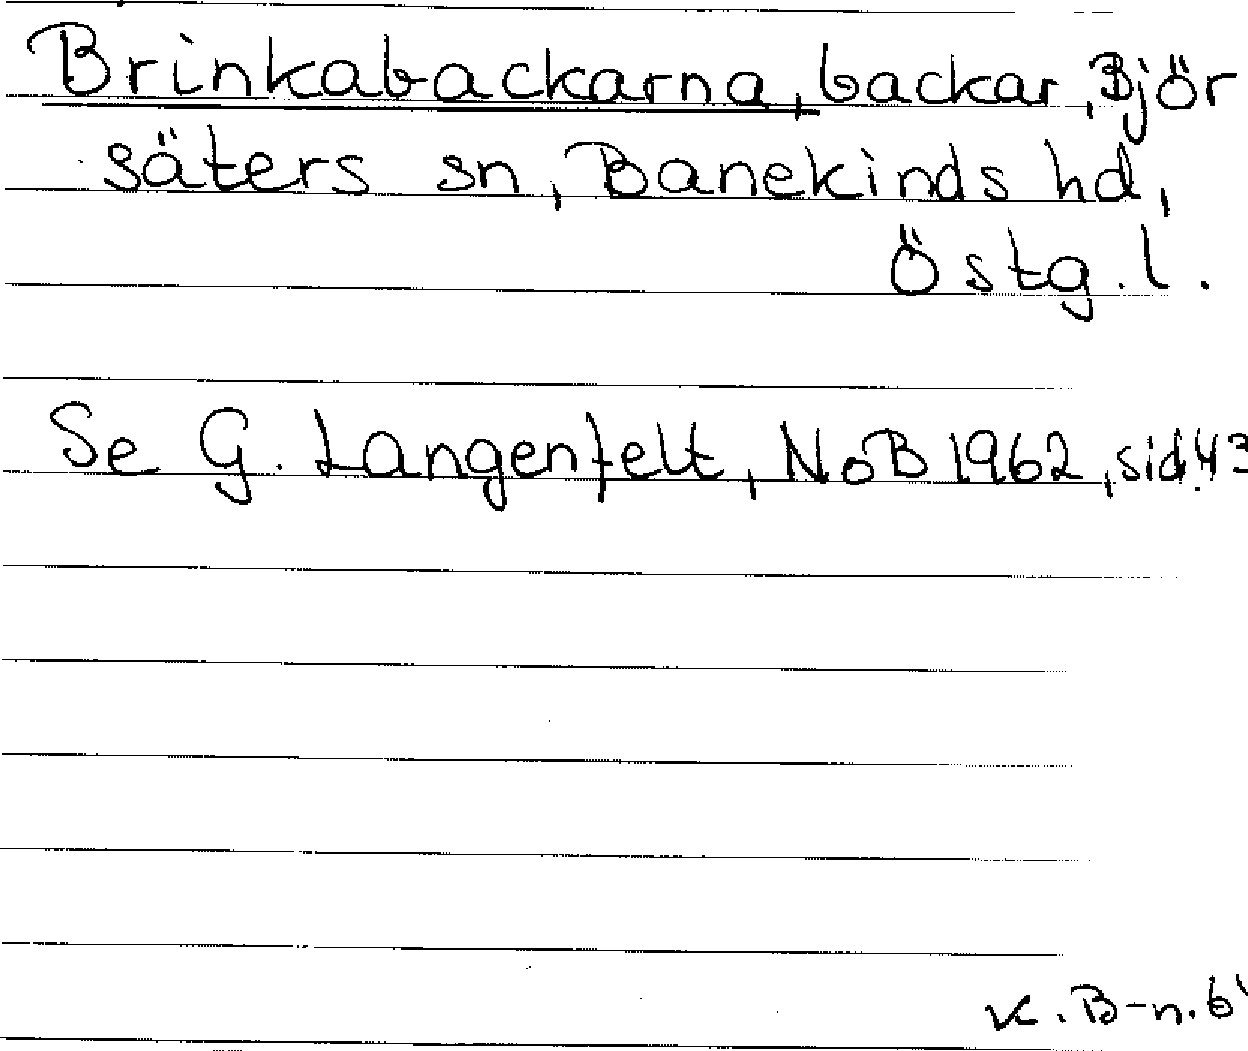 Brinkabackarna, backar, Björ
säters sn, Banekinds hd,
Östg. l.
Se G. Langenfelt, NoB 1962, sid. 43
K. B-n. 6